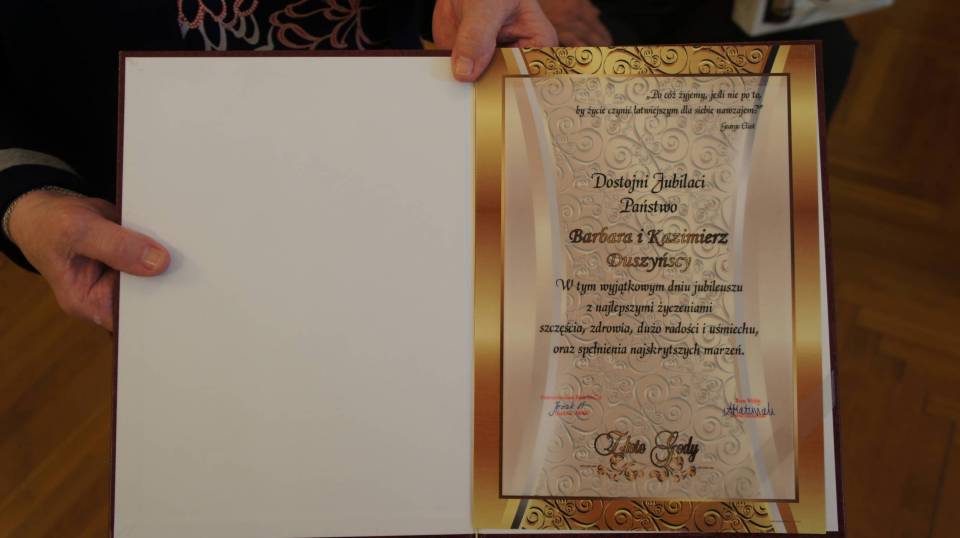 „Po cóż żyjemy, jeśli nie po to,
by życie czynić łatwiejszym dla siebie nawzajem?"
George Eliot
Dostojni Jubilaci
Państwo
Barbara i Kazimierz
Duszyńscy
W tym wyjątkowym dniu jubileuszu
z najlepszymi życzeniami
szczęścia, zdrowia, dużo radości i uśmiechu,
oraz spełnienia najskrytszych marzeń.
Złote Gody